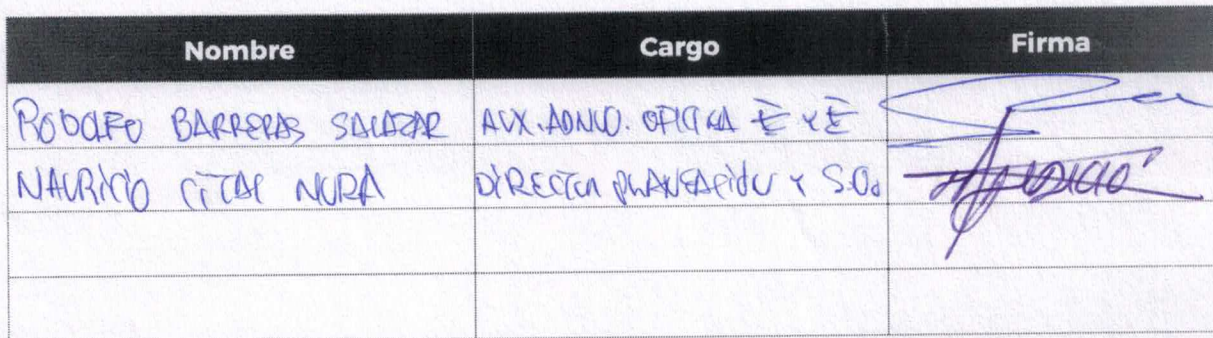 Nombre Cargo Firma
RODOLFO BARRERAS SALAZAR AUX. ADMVO. OFICINA E Y E
MAURICIO MURA DIRECTOR PLANEACIÓN Y S.O.